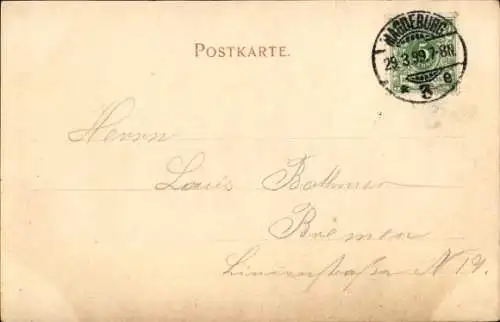 POSTKARTE.
MAGDEBURG
29.3.99.7-8N
* 3 e
Herrn
Louis Bollmer
Bremen
Linienstraße N 14.